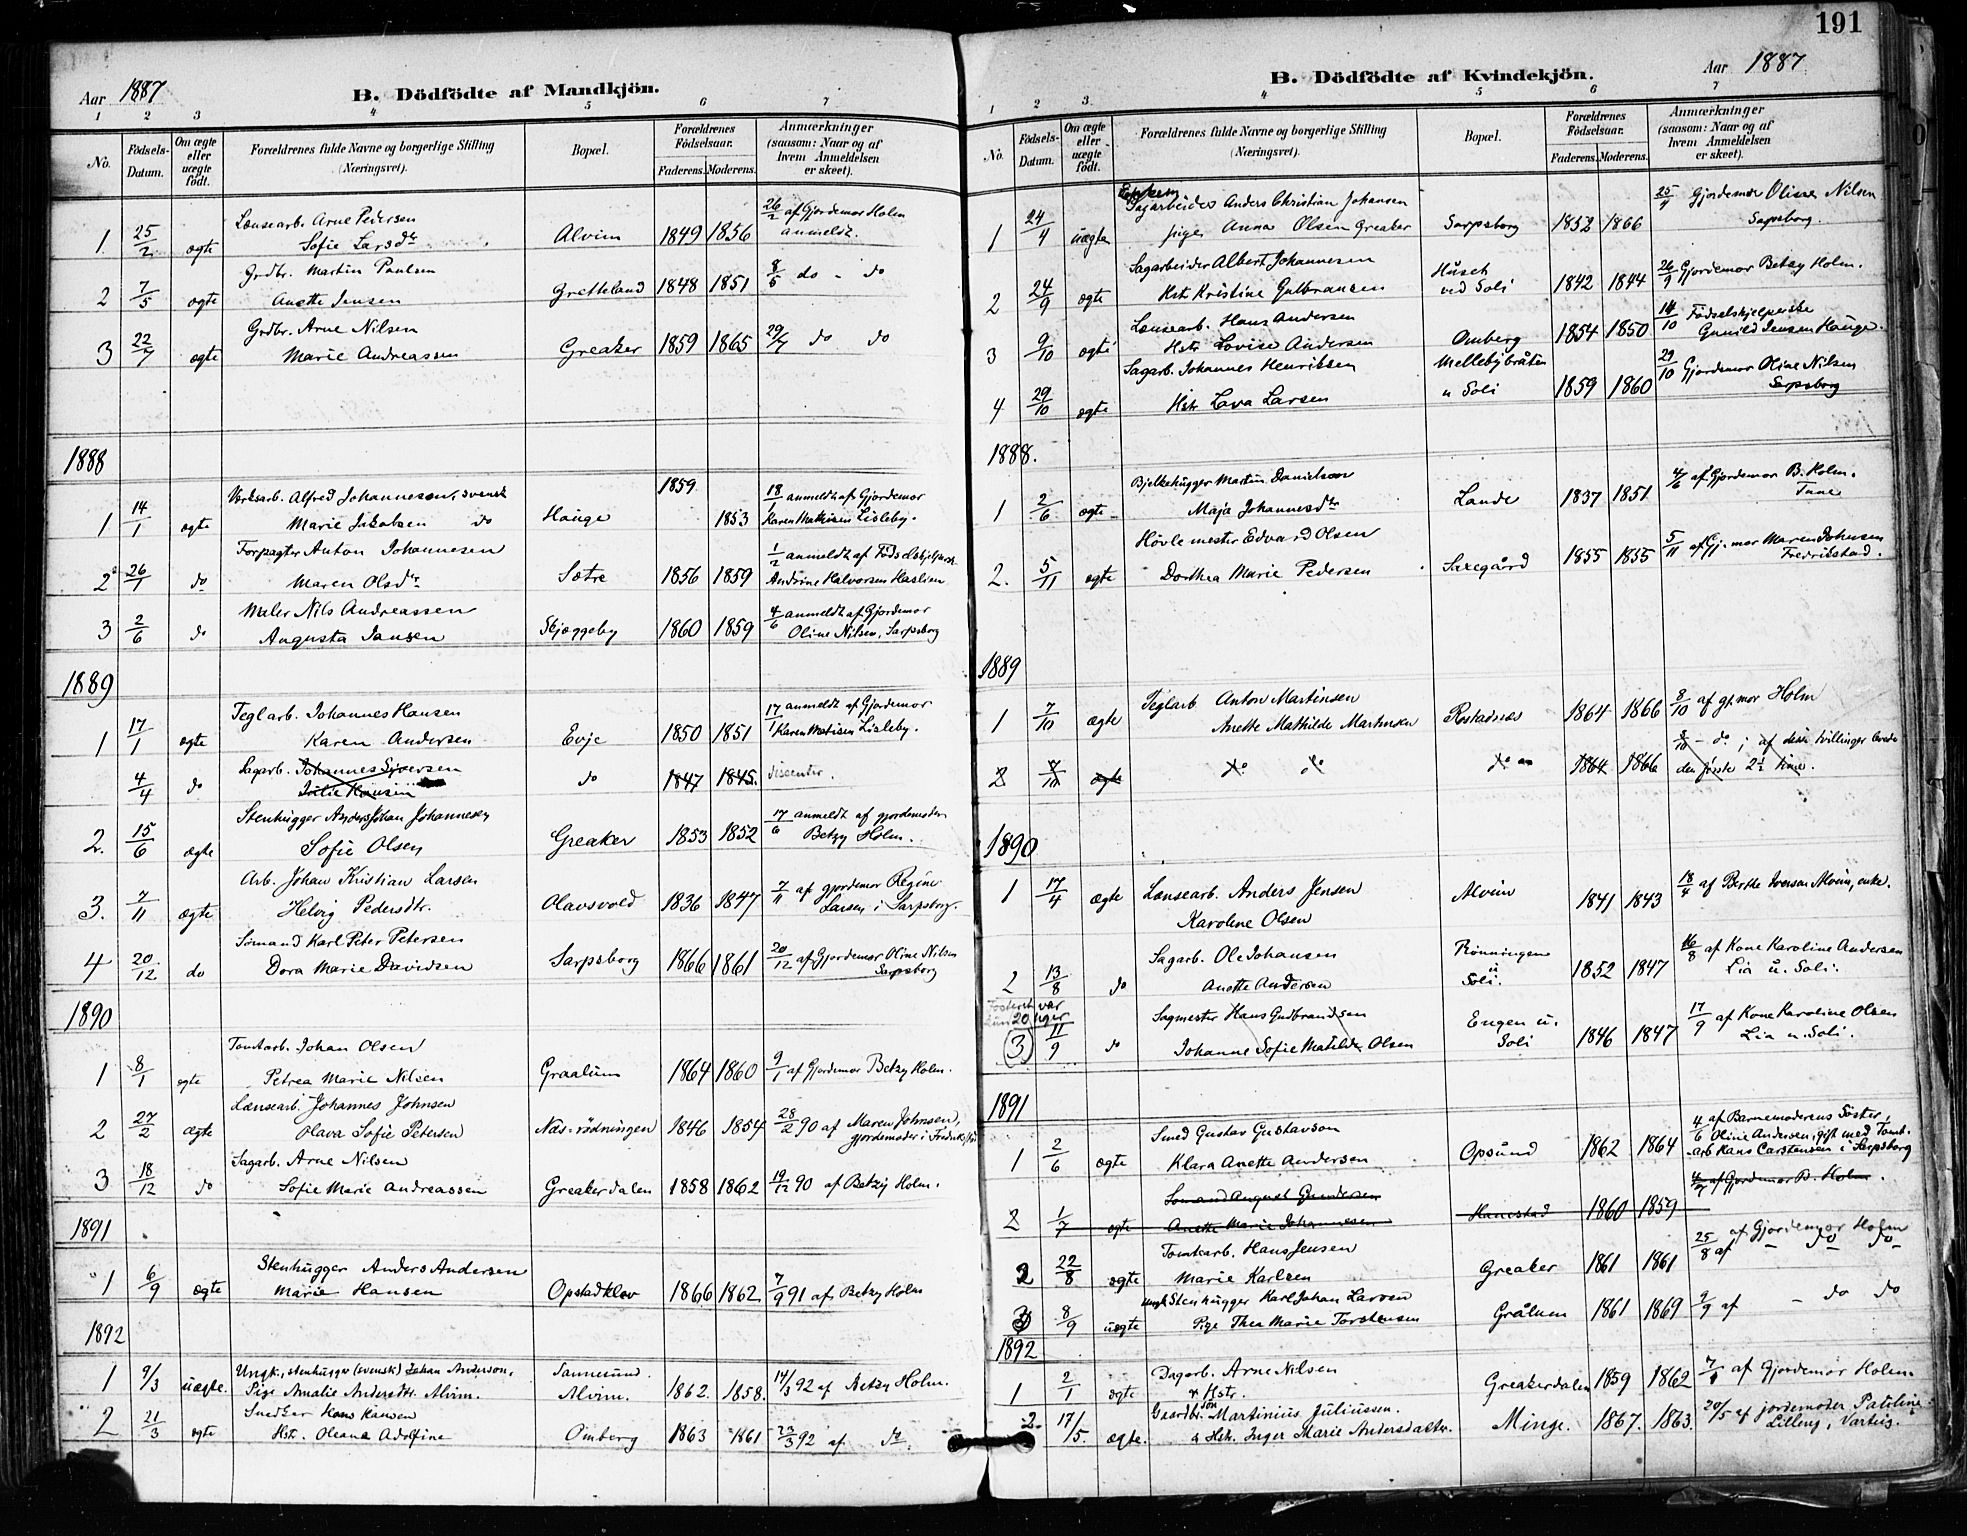 191
Aar 1887
B. Dödfödte af Mandkjön.
1 2 3 4 5 6 7
No.
Födsels-Datum.
Om ægte eller uægte født.
Forældrenes fulde Navne og borgerlige Stilling (Næringsvei).
Bopæl.
Forældrenes Födselsaar.
Faderens. Moderens.
Anmærkninger (saasom: Naar og af hvem Anmeldelsen er skeet).
1 25/2 ægte Lænsearb. Arne Pedersen
Sofie Larsdtr Alvim 1849 1856 26/2 af Gjordemor Holm anmeldt.
2 7/5 ægte Grdbr. Martin Paulsen
Anette Jensen Gretteland 1848 1851 8/5 do - do
3 22/7 ægte Grdbr. Arne Nilsen
Marie Andreassen Greaker 1859 1865 29/7 do do
1888
1 14/1 ægte Verksarb. Alfred Johannesson, svensk
Marie Jakobsen do Hauge 1859 1853 18/1 anmeldt af Gjordemor
Karen Mathisen Lisleby.
2 26/1 do Forpagter Anton Johannesen
Maren Olsdtr Sætre 1856 1859 1/2 anmeldt af Fødselshjelpersk
Andrine Halvorsen Haslien
3 2/6 do Maler Nils Andreassen
Augusta Jansen Skjeggeby 1860 1859 4/6 anmeldt af Gjordemor
Oline Nilsen, Sarpsborg
1889
1 17/1 ægte Teglarb. Johannes Hansen
Karen Andersen Evje 1850 1851 17/1 anmeldt af Gjordemor
Karen Mathisen Lisleby.
4/4 do Sagarb. Johannes Syversen
Julie Hansen do 1847 1845. dissenter.
2. 15/6 ægte Stenhugger Anders Johan Johannesen
Sofie Olsen Greaker 1853 1852 17/6 anmeldt af gjordemoder
Betzy Holm.
3. 7/11 ægte Arb. Johan Kristian Larsen
Helvig Pedersdtr. Olavsvold 1836 1847 7/11 af gjordemor Regine
Larsen i Sarpsborg.
4 20/12 do Sömand Karl Peter Petersen
Dora Marie Davidsen Sarpsborg 1866 1861 20/12 af Gjordemor Oline Nilsen
Sarpsborg
1890
1 8/1 ægte Tomtarb. Johan Olsen
Petrea Marie Nilsen Graalum 1864 1860 9/1 af Gjordemor Betzy Holm.
2 27/2 ægte Lænsearb. Johannes Johnsen
Olava Sofie Petersen Næs-rödningen 1846 1854 28/2 90 af Maren Johnsen,
gjordemoder i Fredrikstad
3 18/12 do Sagarb. Arne Nilsen
Sofie Marie Andreassen Greakerdalen 1858 1862 19/12 90 af Betzy Holm.
1891
1 6/9 ægte Stenhugger Anders Andersen
Marie Hansen Opstadklev 1866 1862 7/9 91 af Betzy Holm
1892
1 9/3 uægte. Ungk., stenhugger (svensk) Johan Anderson,
Pige Amalie Andersdtr. Alvim. Sannesund. Alvim. 1862. 1858. 14/3 92 af Betzy Holm.
2 21/3 ægte Snedker Hans Hansen
Hstr. Oleana Adolfine Omberg 1863 1861 23/3 92 af do.
Aar 1887
B. Dödfödte af Kvindekjön.
1 2 3 4 5 6 7
No.
Födsels-Datum.
Om ægte eller uægte født.
Forældrenes fulde Navne og borgerlige Stilling (Næringsvei).
Bopæl.
Forældrenes Födselsaar.
Faderens. Moderens.
Anmærkninger (saasom: Naar og af hvem Anmeldelsen er skeet).
1 24/4 uægte Enkem. Sagarbeider Anders Christian Johansen
pige Anna Olsen Greaker Sarpsborg 1852 1866 25/4 Gjordemor Oline Nilsen
Sarpsborg.
2 24/9 ægte Sagarbeider Albert Johannesen
Hstr Kristine Gulbransen Huset ved Soli 1842 1844 26/9 Gjordemor Betzy Holm.
3 9/10 ægte Lænsearb. Hans Andersen
Hstr Lovise Andersen Omberg 1854 1850 14/10 Födselshjelperske
Gunild Jensen Hauge.
4 29/10 ægte Sagarb. Johannes Henriksen
Hstr Lava Larsen Mellebybråten u Soli 1859 1860 29/10 Gjordemor Oline Nilsen
Sarpsborg
1888.
1 2/6 ægte Bjelkehugger Martin Danielsson
Maja Johannesdtr Lande 1837 1851 4/6 af Gjordemor B. Holm.
Tune
2. 5/11 ægte Hövlemester Edvard Olsen
Dorthea Marie Pedersen Saxegård 1855 1855 5/11 af Gj.mor Maren Johnsen
Fredrikstad.
1889
1 7/10 ægte Teglarb Anton Martinsen
Anette Mathilde Martinsen Rostadnes 1864 1866 8/10 af gj.mor Holm
2 7/10 ægte do do do 1864 1866 8/10 - do ; af disse tvillinger levede
den første 2½ time.
1890
1 17/4 ægte Lænsearb. Anders Jensen
Karoline Olsen Alvim 1841 1843 18/4 af Berthe Iversen Alvim, enke.
2 13/8 do Sagarb. Ole Johansen
Anette Andersen Rönningen u Soli. 1852 1847 16/8 af Kone Karoline Andersen
Lia u. Soli.
Fosteret var kun 20 uger
(3) 11/9 do Sagmester Hans Gudbrandsen
Johanne Sofie Matilde Olsen Engen u. Soli 1846 1847 17/9 af Kone Karoline Olsen
Lia u. Soli.
1891
1 2/6 ægte Smed Gustav Gustavson
Klara Anette Andersen Opsund 1862 1864 4/6 af Barnemoderens Söster,
Oline Andersen, gift med Tomt-
arb Hans Carstensen i Sarpsborg
2 1/7 ægte Sömand August Gundersen
Anette Marie Johannesen Hanestad 1860 1859 4/7 af Gjordemor B. Holm.
2 22/8 ægte Tomtearb. Hans Jensen
Marie Karlsen Greaker 1861 1861 25/8 af Gjordemor Holm
af - do do
3 8/9 uægte Ungk Stenhugger Karl Johan Larsen
Pige Thea Marie Torstensen Grålum 1861 1869 9/9 af - do do
1892
1 2/1 ægte Dagarb. Arne Nilsen
& Hstr. Greakerdalen 1859 1862 7/1 af Gjordemor Holm.
2. 17/5. ægte. Gaardbr.sön Martinius Juliussen.
& Hstr. Inger Marie Andersdatter. Minge. 1867. 1863. 20/5 af jordemoder Pauline
Lilleng, Varteig.